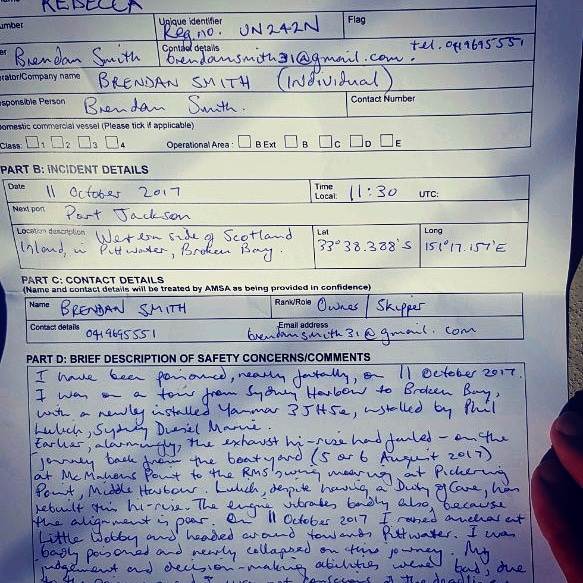 REBECCA
umber
Unique identifier
Reg. no. UN242N
Flag
er Brendan Smith
Contact details
brendansmith31@gmail.com.
tel. 0419695551
erator/Company name BRENDAN SMITH (Individual)
sponsible Person Brendan Smith.
Contact Number
omestic commercial vessel (Please tick if applicable)
Class: 1 2 3 4 Operational Area: B Ext B C D E
PART B: INCIDENT DETAILS
Date 11 October 2017
Time
Local: 11:30 UTC:
Next port Port Jackson
Location description Western side of Scotland
Island, in Pittwater, Broken Bay.
Lat
33° 38.388'S
Long
151° 17.157'E
PART C: CONTACT DETAILS
(Name and contact details will be treated by AMSA as being provided in confidence)
Name BRENDAN SMITH
Rank/Role Owner / Skipper
Contact details 0419695551
Email address
brendansmith31@gmail.com
PART D: BRIEF DESCRIPTION OF SAFETY CONCERNS/COMMENTS
I have been poisoned, nearly fatally, on 11 October 2017.
I was on a tour from Sydney Harbour to Broken Bay,
with a newly installed Yanmar 3JH5e, installed by Phil
Lulich, Sydney Diesel Marine.
Earlier, alarmingly, the exhaust hi-rise had failed - on the
journey back from the boatyard (5 or 6 August 2017)
at McMahons Point to the RMS swing mooring at Pickering
Point, Middle Harbour. Lulich, despite having a Duty of Care, has
rebuilt this hi-rise. The engine vibrates badly also, because
the alignment is poor. On 11 October 2017 I raised anchor at
Little Wobby and headed around towards Pittwater. I was
badly poisoned and nearly collapsed on this journey. My
judgement and decision-making abilities were bad, due